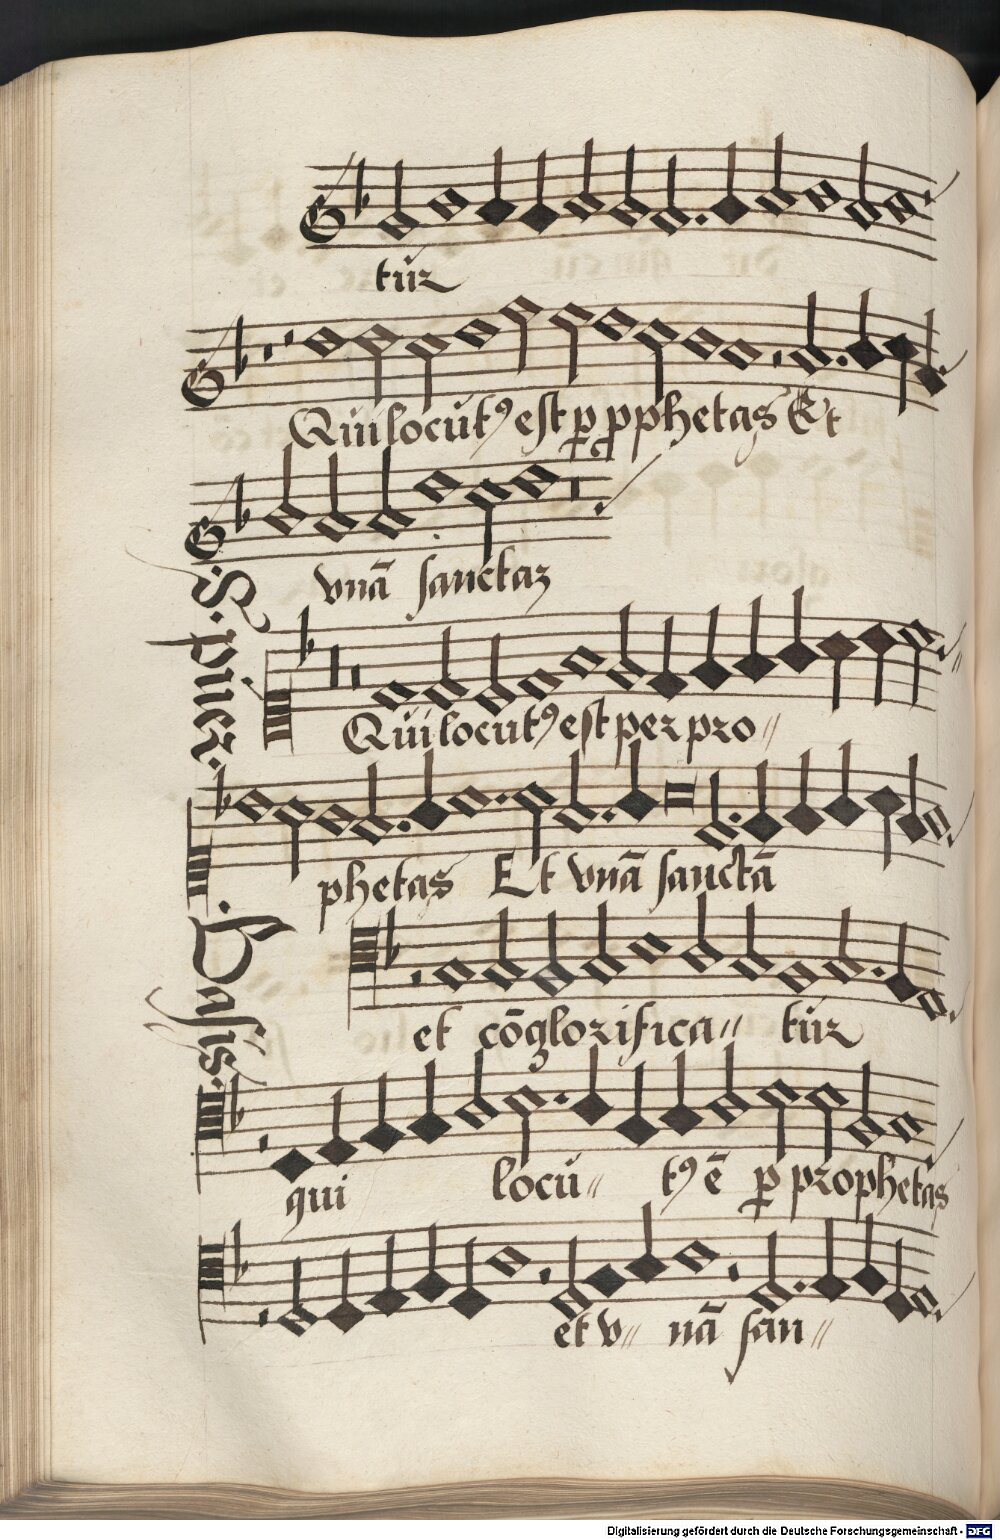 tur
Qui locutꝰ est ꝑ ꝓphetas Et
vnā sanctaz
S. puer.
Qui locutꝰ est per pro〃
phetas Et vnā sanctā
Basis.
et cōglorifica〃 tur
qui locu〃 tꝰ ē ꝑ prophetas
et v〃 nā san〃
Digitalisierung gefördert durch die Deutsche Forschungsgemeinschaft - DFG